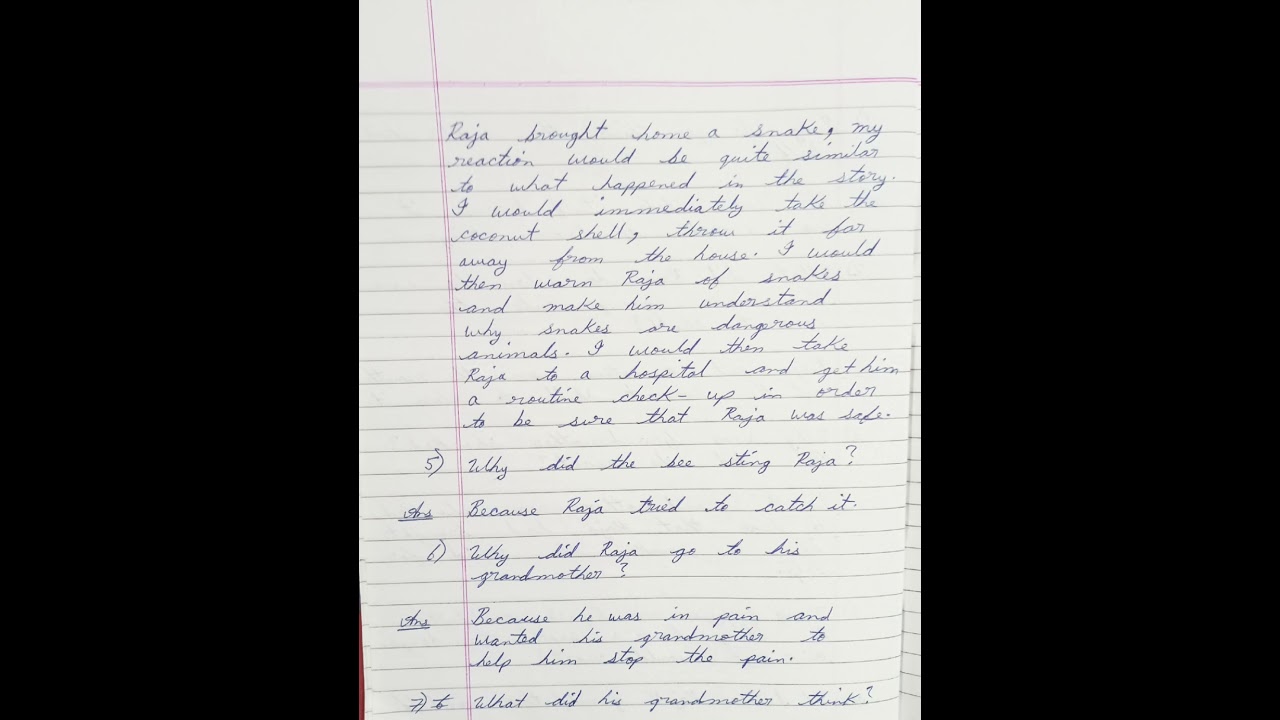 Raja brought home a snake, my
reaction would be quite similar
to what happened in the story.
I would immediately take the
coconut shell, throw it far
away from the house. I would
then warn Raja of snakes
and make him understand
why snakes are dangerous
animals. I would then take
Raja to a hospital and get him
a routine check-up in order
to be sure that Raja was safe.
5) Why did the bee sting Raja?
Ans Because Raja tried to catch it.
6) Why did Raja go to his
grandmother?
Ans Because he was in pain and
wanted his grandmother to
help him stop the pain.
7) What did his grandmother think?